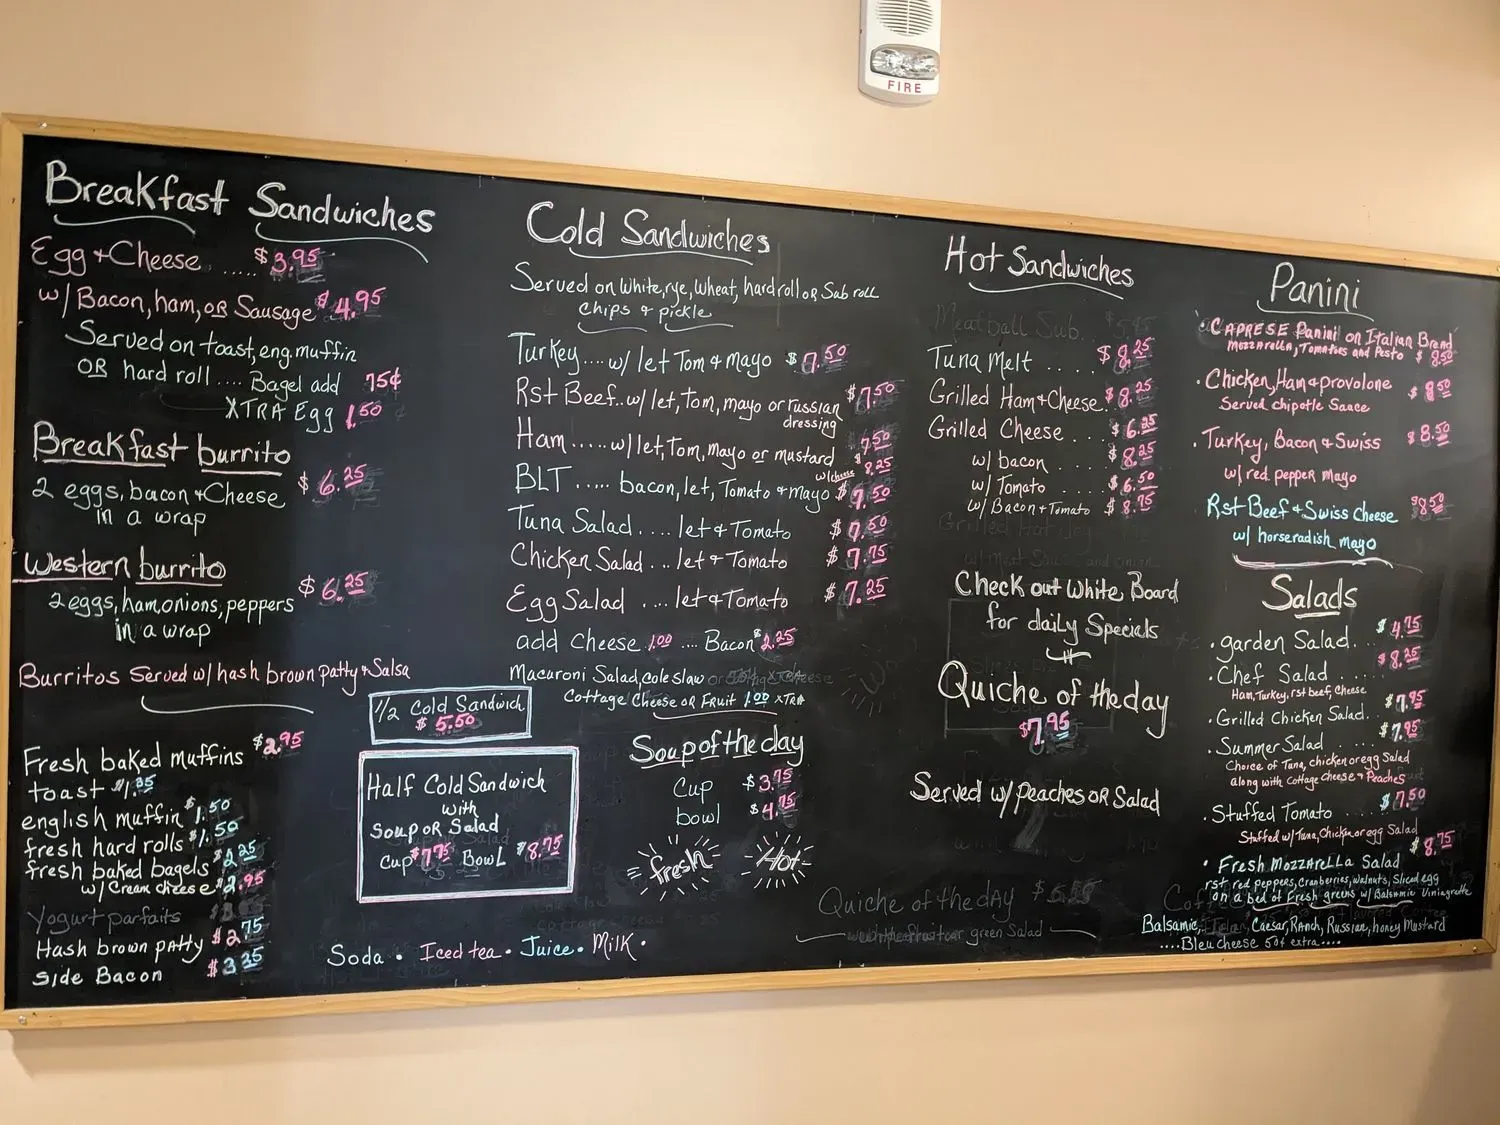 FIRE
Breakfast Sandwiches
Egg + Cheese ..... $3.95
w/ Bacon, ham, OR Sausage $4.95
Served on toast, eng. muffin
OR hard roll .... Bagel add 75¢
XTRA Egg 1.50
Breakfast burrito
2 eggs, bacon + Cheese $6.25
in a wrap
Western burrito
2 eggs, ham, onions, peppers $6.25
in a wrap
Burritos Served w/ hash brown patty + Salsa
Fresh baked muffins $2.95
toast $1.35
english muffin $1.50
fresh hard rolls $1.50
fresh baked bagels $2.25
w/ Cream cheese $2.95
Yogurt parfaits
Hash brown patty $2.75
Side Bacon $3.25
Cold Sandwiches
Served on White, rye, Wheat, hard roll OR Sub roll
Chips + pickle
Turkey .... w/ let Tom + Mayo $7.50
Rst Beef.. w/ let, Tom, mayo or russian $7.50
dressing
Ham ..... w/ let, Tom, mayo or mustard 7.50
w/ cheese $8.25
BLT ..... bacon, let, Tomato + Mayo $7.50
Tuna Salad .... let + Tomato $7.50
Chicken Salad ... let + Tomato $7.75
Egg Salad .... let + Tomato $7.25
add cheese 1.00 .... Bacon $2.25
Macaroni Salad, coleslaw
Cottage Cheese OR Fruit 1.00 XTRA
1/2 Cold Sandwich
$5.50
Half Cold Sandwich
with
Soup OR Salad
Cup $7.75 Bowl $8.75
Soup of the day
Cup $3.75
bowl $4.75
fresh Hot
Soda • Iced tea • Juice • Milk •
Hot Sandwiches
Meatball Sub
Tuna Melt .... $8.25
Grilled Ham + Cheese. $8.25
Grilled Cheese ... $6.25
w/ bacon .... $8.25
w/ Tomato .... $6.50
w/ Bacon + Tomato $8.75
Check out White Board
for daily Specials
Quiche of the day
$7.95
Served w/ peaches OR Salad
Quiche of the day
green Salad
Panini
• CAPRESE Panini on Italian Bread
Mozzarella, Tomatoes and Pesto $8.50
• Chicken, Ham + provolone $8.50
Served chipotle Sauce
• Turkey, Bacon + Swiss $8.50
w/ red pepper mayo
Rst Beef + Swiss Cheese $8.50
w/ horseradish mayo
Salads
• garden Salad.. $4.75
• Chef Salad ..... $8.25
Ham, Turkey, rst beef, Cheese
• Grilled Chicken Salad. $7.95
• Summer Salad .... $7.95
Choice of Tuna, chicken or egg Salad
along with Cottage cheese + Peaches
• Stuffed Tomato ..... $7.50
Stuffed w/ Tuna, Chicken, or egg Salad
• Fresh Mozzarella Salad $8.75
rst red peppers, Cranberries, walnuts, Sliced egg
on a bed of Fresh greens w/ Balsamic Viniagrette
Balsamic, Caesar, Ranch, Russian, honey Mustard
.... Bleu cheese 50¢ extra ....